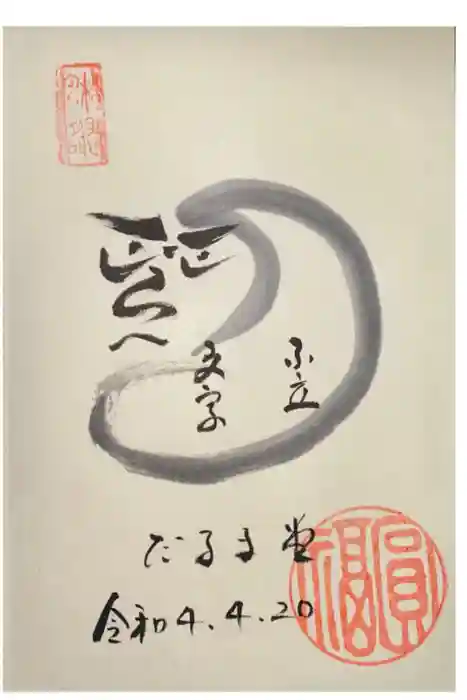 不立
文字
だるま堂
令和4.4.20